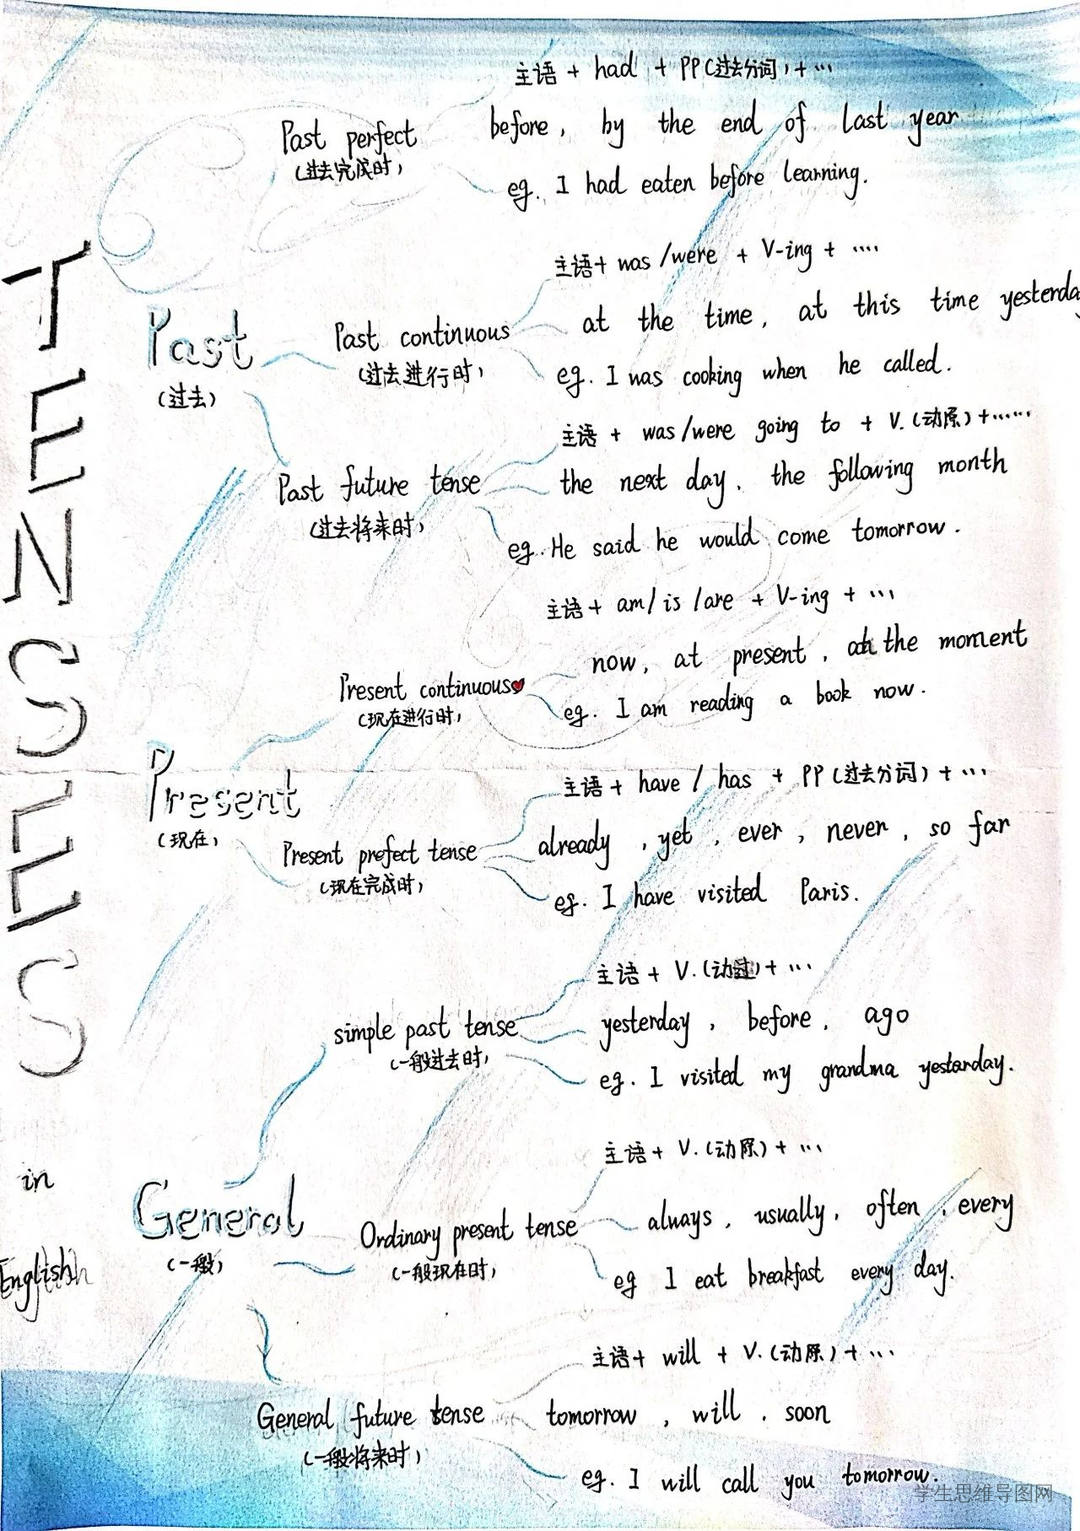 TENSES
in
English
Past
(过去)
Past perfect
(过去完成时)
主语 + had + PP(过去分词) + ...
before, by the end of last year
eg. I had eaten before learning.
Past continuous
(过去进行时)
主语 + was/were + V-ing + ....
at the time, at this time yesterday
eg. I was cooking when he called.
Past future tense
(过去将来时)
主语 + was/were going to + V.(动原) + ......
the next day, the following month
eg. He said he would come tomorrow.
Present
(现在)
Present continuous
(现在进行时)
主语 + am/is/are + V-ing + ...
now, at present, at the moment
eg. I am reading a book now.
Present prefect tense
(现在完成时)
主语 + have / has + PP(过去分词) + ...
already, yet, ever, never, so far
eg. I have visited Paris.
General
(一般)
simple past tense
(一般过去时)
主语 + V.(动过) + ...
yesterday, before, ago
eg. I visited my grandma yesterday.
Ordinary present tense
(一般现在时)
主语 + V.(动原) + ...
always, usually, often, every
eg I eat breakfast every day.
General future tense
(一般将来时)
主语 + will + V.(动原) + ...
tomorrow, will, soon
eg. I will call you tomorrow.
学生思维导图网